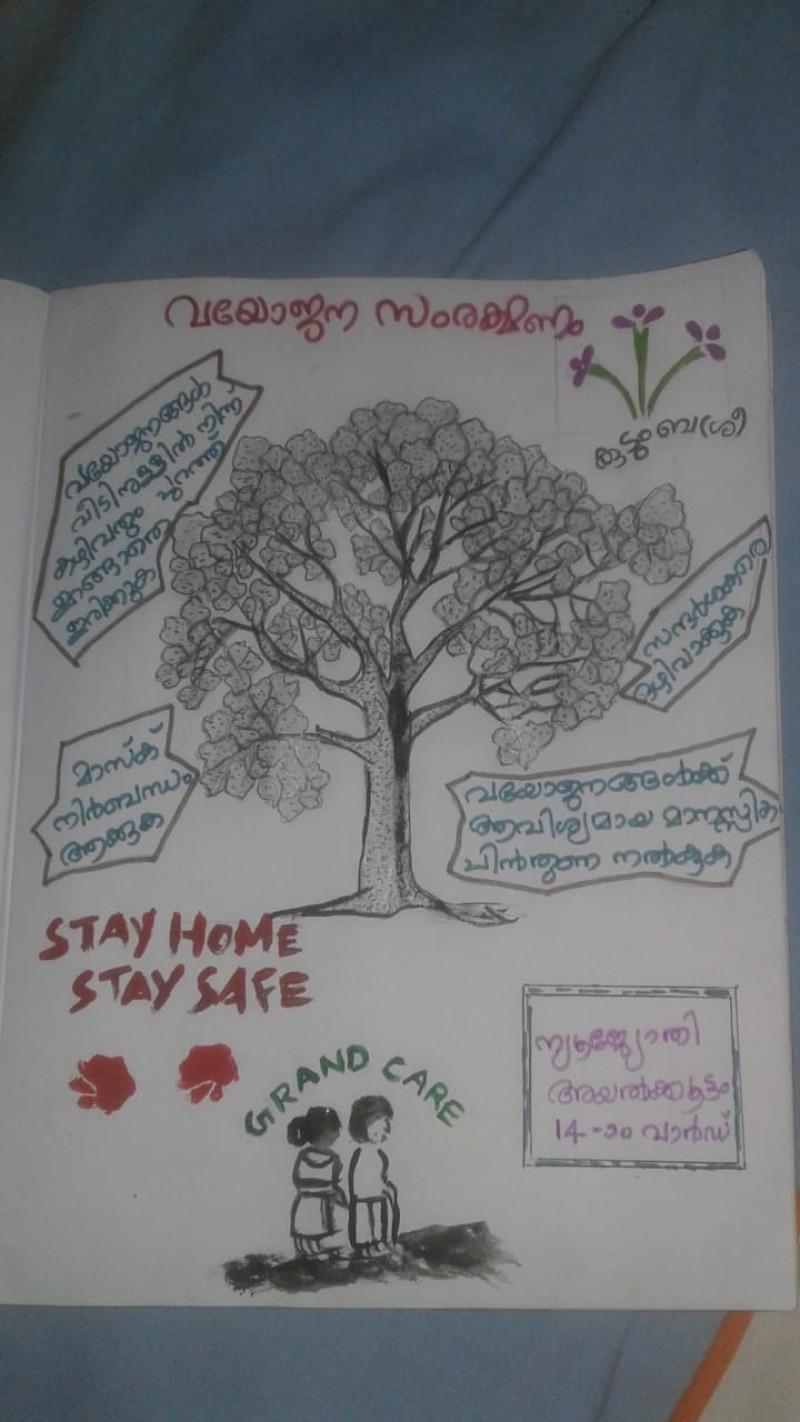 വയോജന സംരക്ഷണം
കുടുംബശ്രീ
വയോജനങ്ങൾ
വീടിനുള്ളിൽ നിന്ന്
കഴിവതും പുറത്ത്
ഇറങ്ങാതെ
ഇരിക്കുക
സന്ദർശകരെ
ഒഴിവാക്കുക
മാസ്ക്
നിർബന്ധം
ആക്കുക
വയോജനങ്ങൾക്ക്
ആവിശ്യമായ മാനുസ്സിക
പിൻതുണ നൽകുക
STAY HOME
STAY SAFE
GRAND CARE
ന്യൂജ്യോതി
അയൽക്കൂട്ടം
14-ാം വാർഡ്